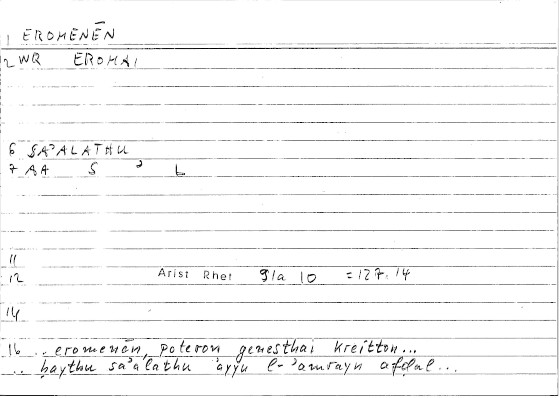 1 EROMENĒN
2 WR EROMAI
6 SA'ALATHU
7 AA S ' L
11
12 Arist Rhet 91a 10 = 127.14
14
16 .. eromenēn, poteron genesthai kreitton...
.. ḥaythu sa'alathu 'ayyu l-'amrayn afḍal...